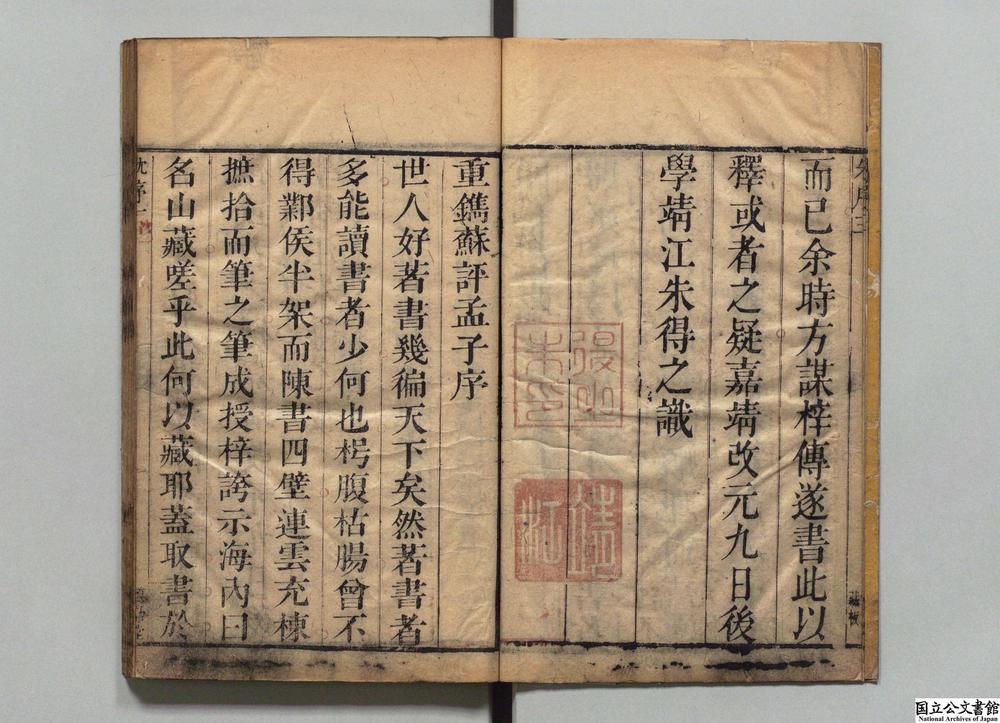 而已余時方謀梓傳遂書此以
釋或者之疑嘉靖改元九日後
學靖江朱得之識
靖江
重鐫蘇評孟子序
世人好著書幾徧天下矣然著書者
多能讀書者少何也枵腹枯腸曾不
得鄴侯半架而陳書四壁連雲充棟
摭拾而筆之筆成授梓誇示海內曰
名山藏嗟乎此何以藏耶蓋取書於
沈序一
国立公文書館
National Archives of Japan